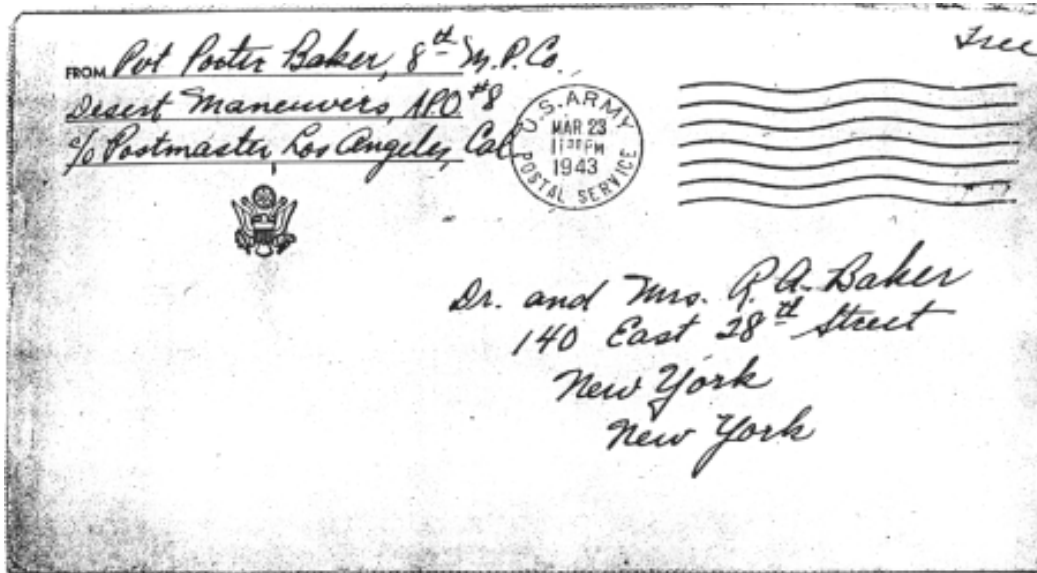 Free
FROM Pvt Porter Baker, 8th M.P. Co.
Desert Maneuvers, A.P.O. #8
c/o Postmaster Los Angeles, Cal
U.S. ARMY
MAR 23
1130 PM
1943
POSTAL SERVICE
Dr. and Mrs. R. A. Baker
140 East 28th Street
New York
New York